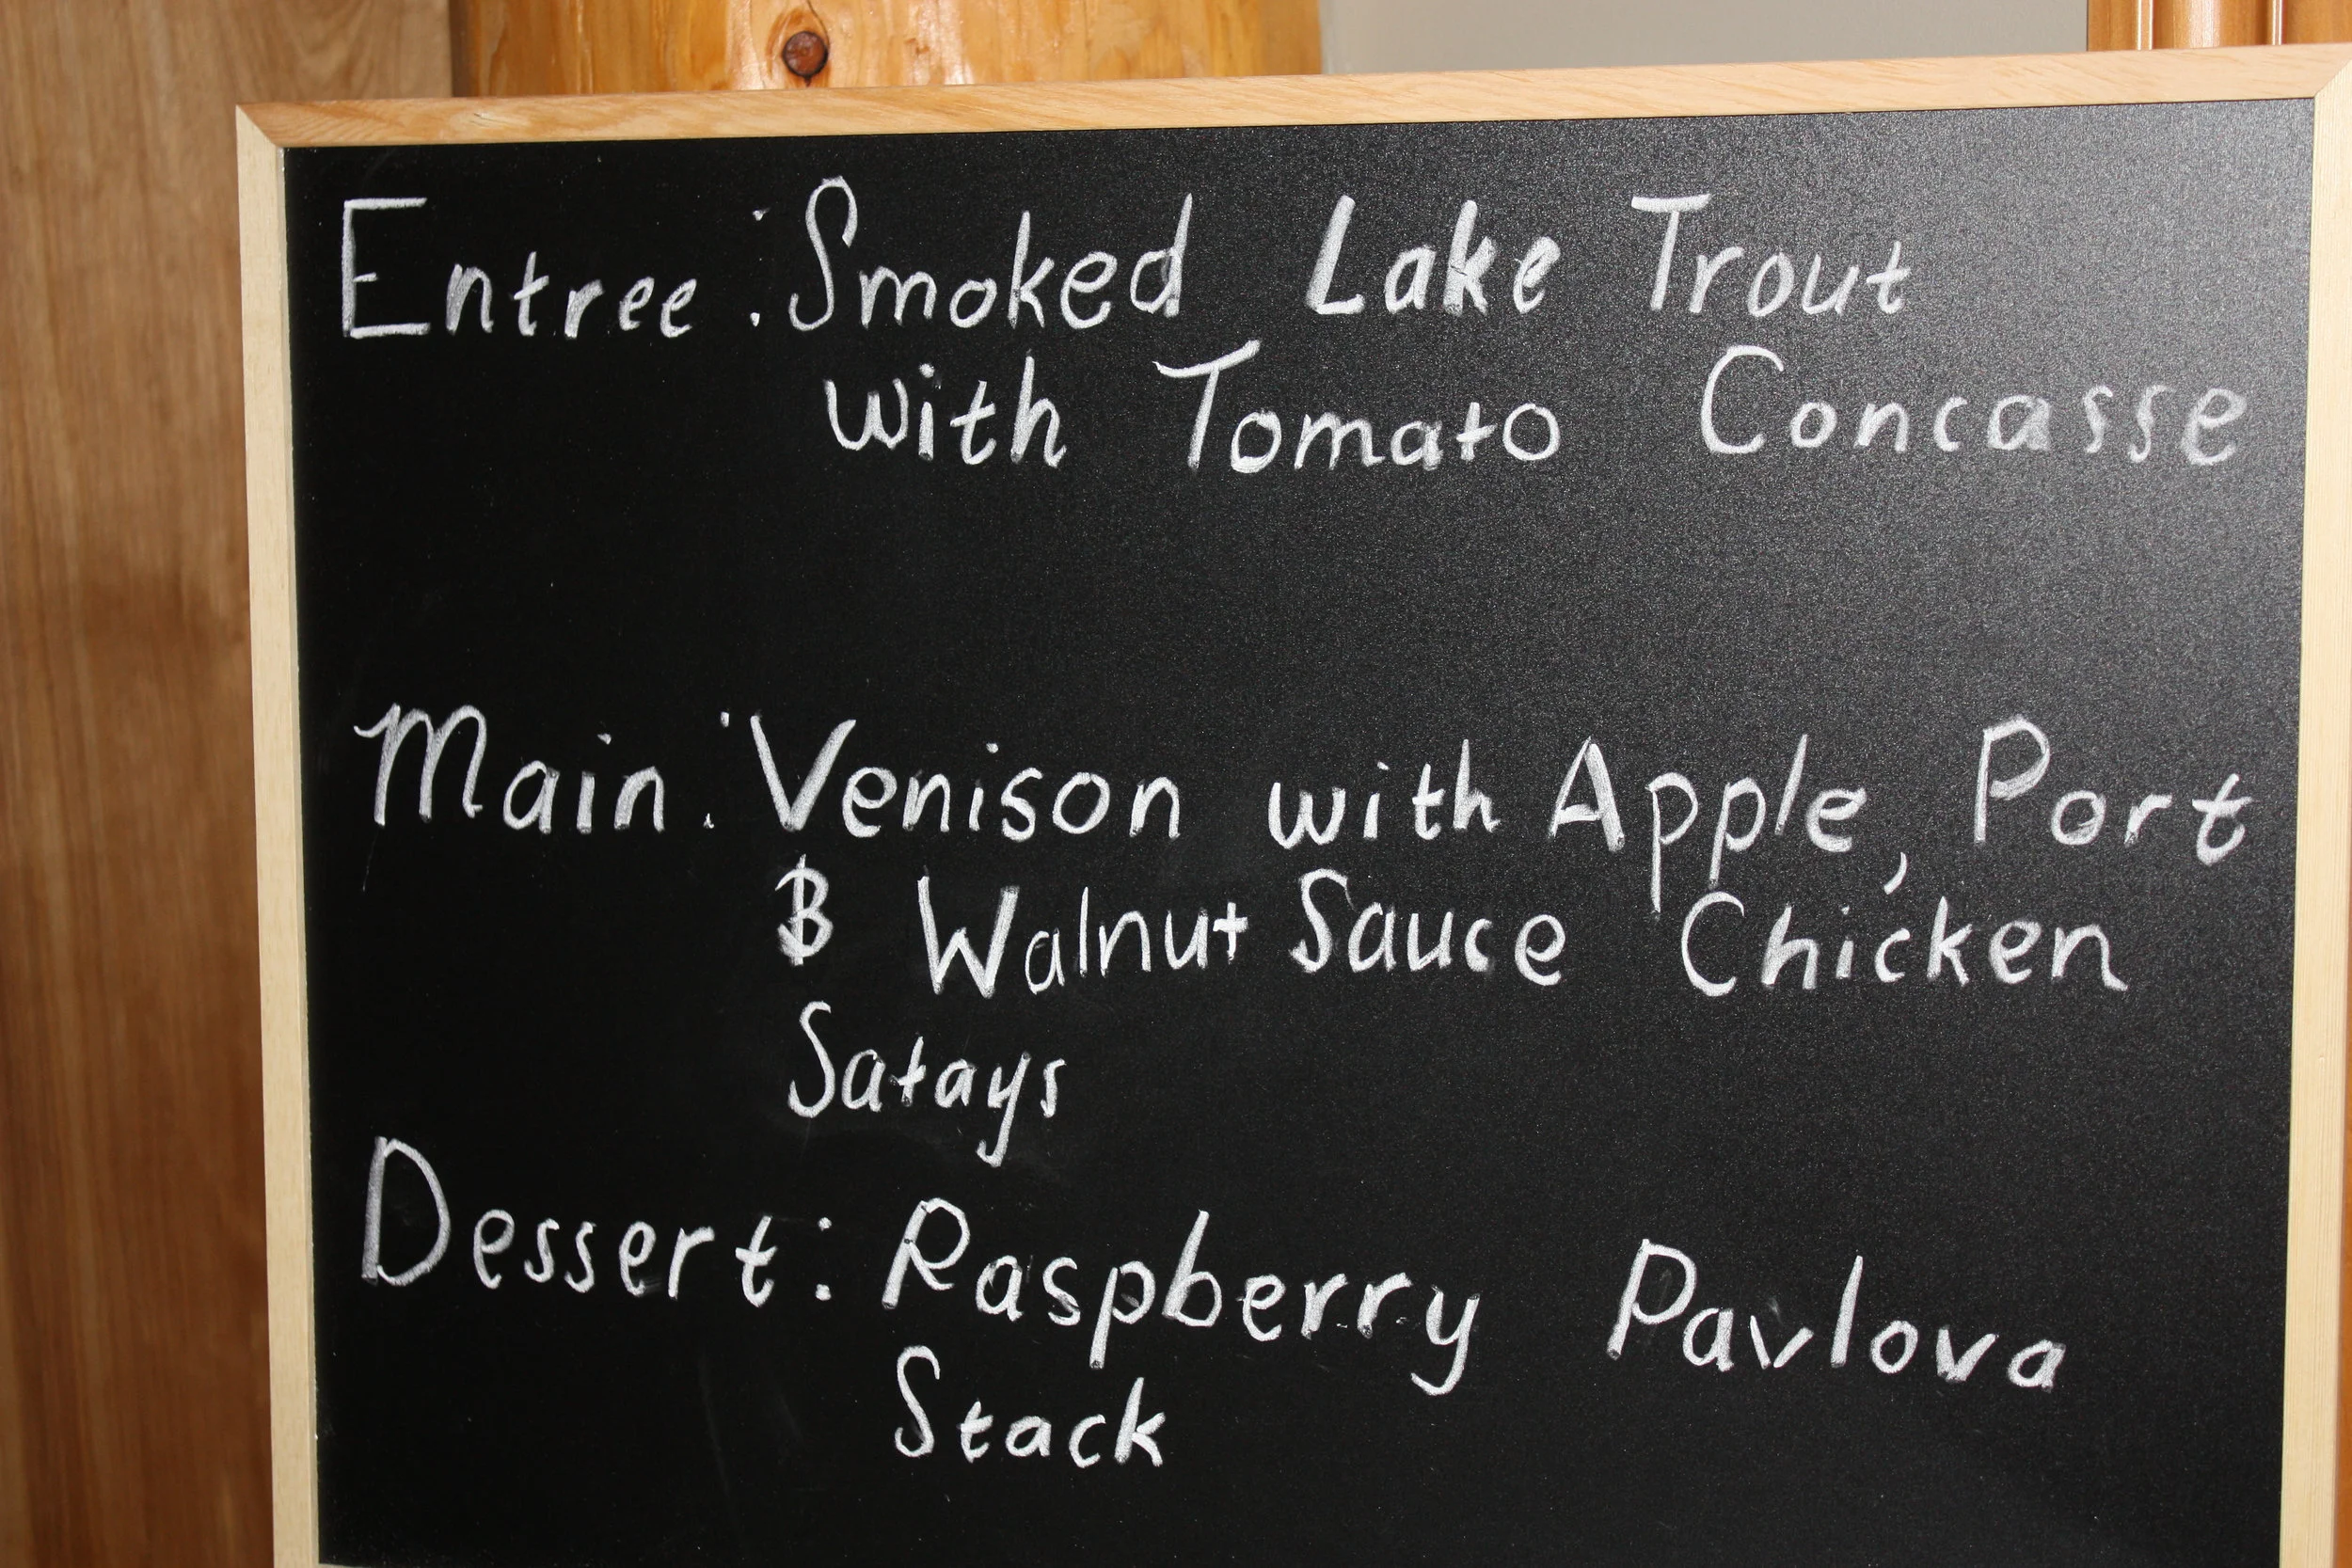 Entree : Smoked Lake Trout
with Tomato Concasse
Main : Venison with Apple, Port
& Walnut Sauce Chicken
Satays
Dessert : Raspberry Pavlova
Stack